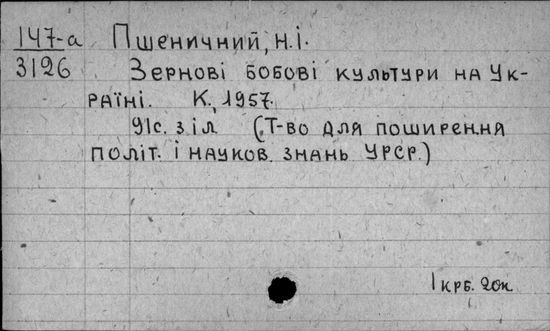 147-а Пшеничний, Н.І.
3126 Зернові бобові культури на Ук-
раїні. К., 1957.
91с. з іл (Т-во для поширення
політ. і науков. знань УРСР.)
1 крб. 20к